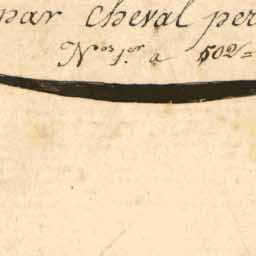 par cheval per
N.os 1.er a 502=